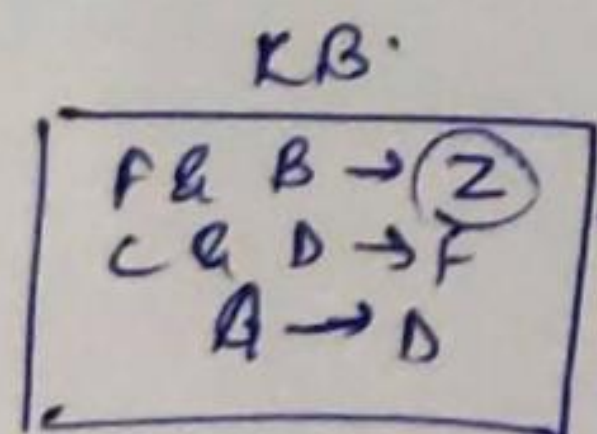 KB.
F & B → Z
C & D → F
A → D